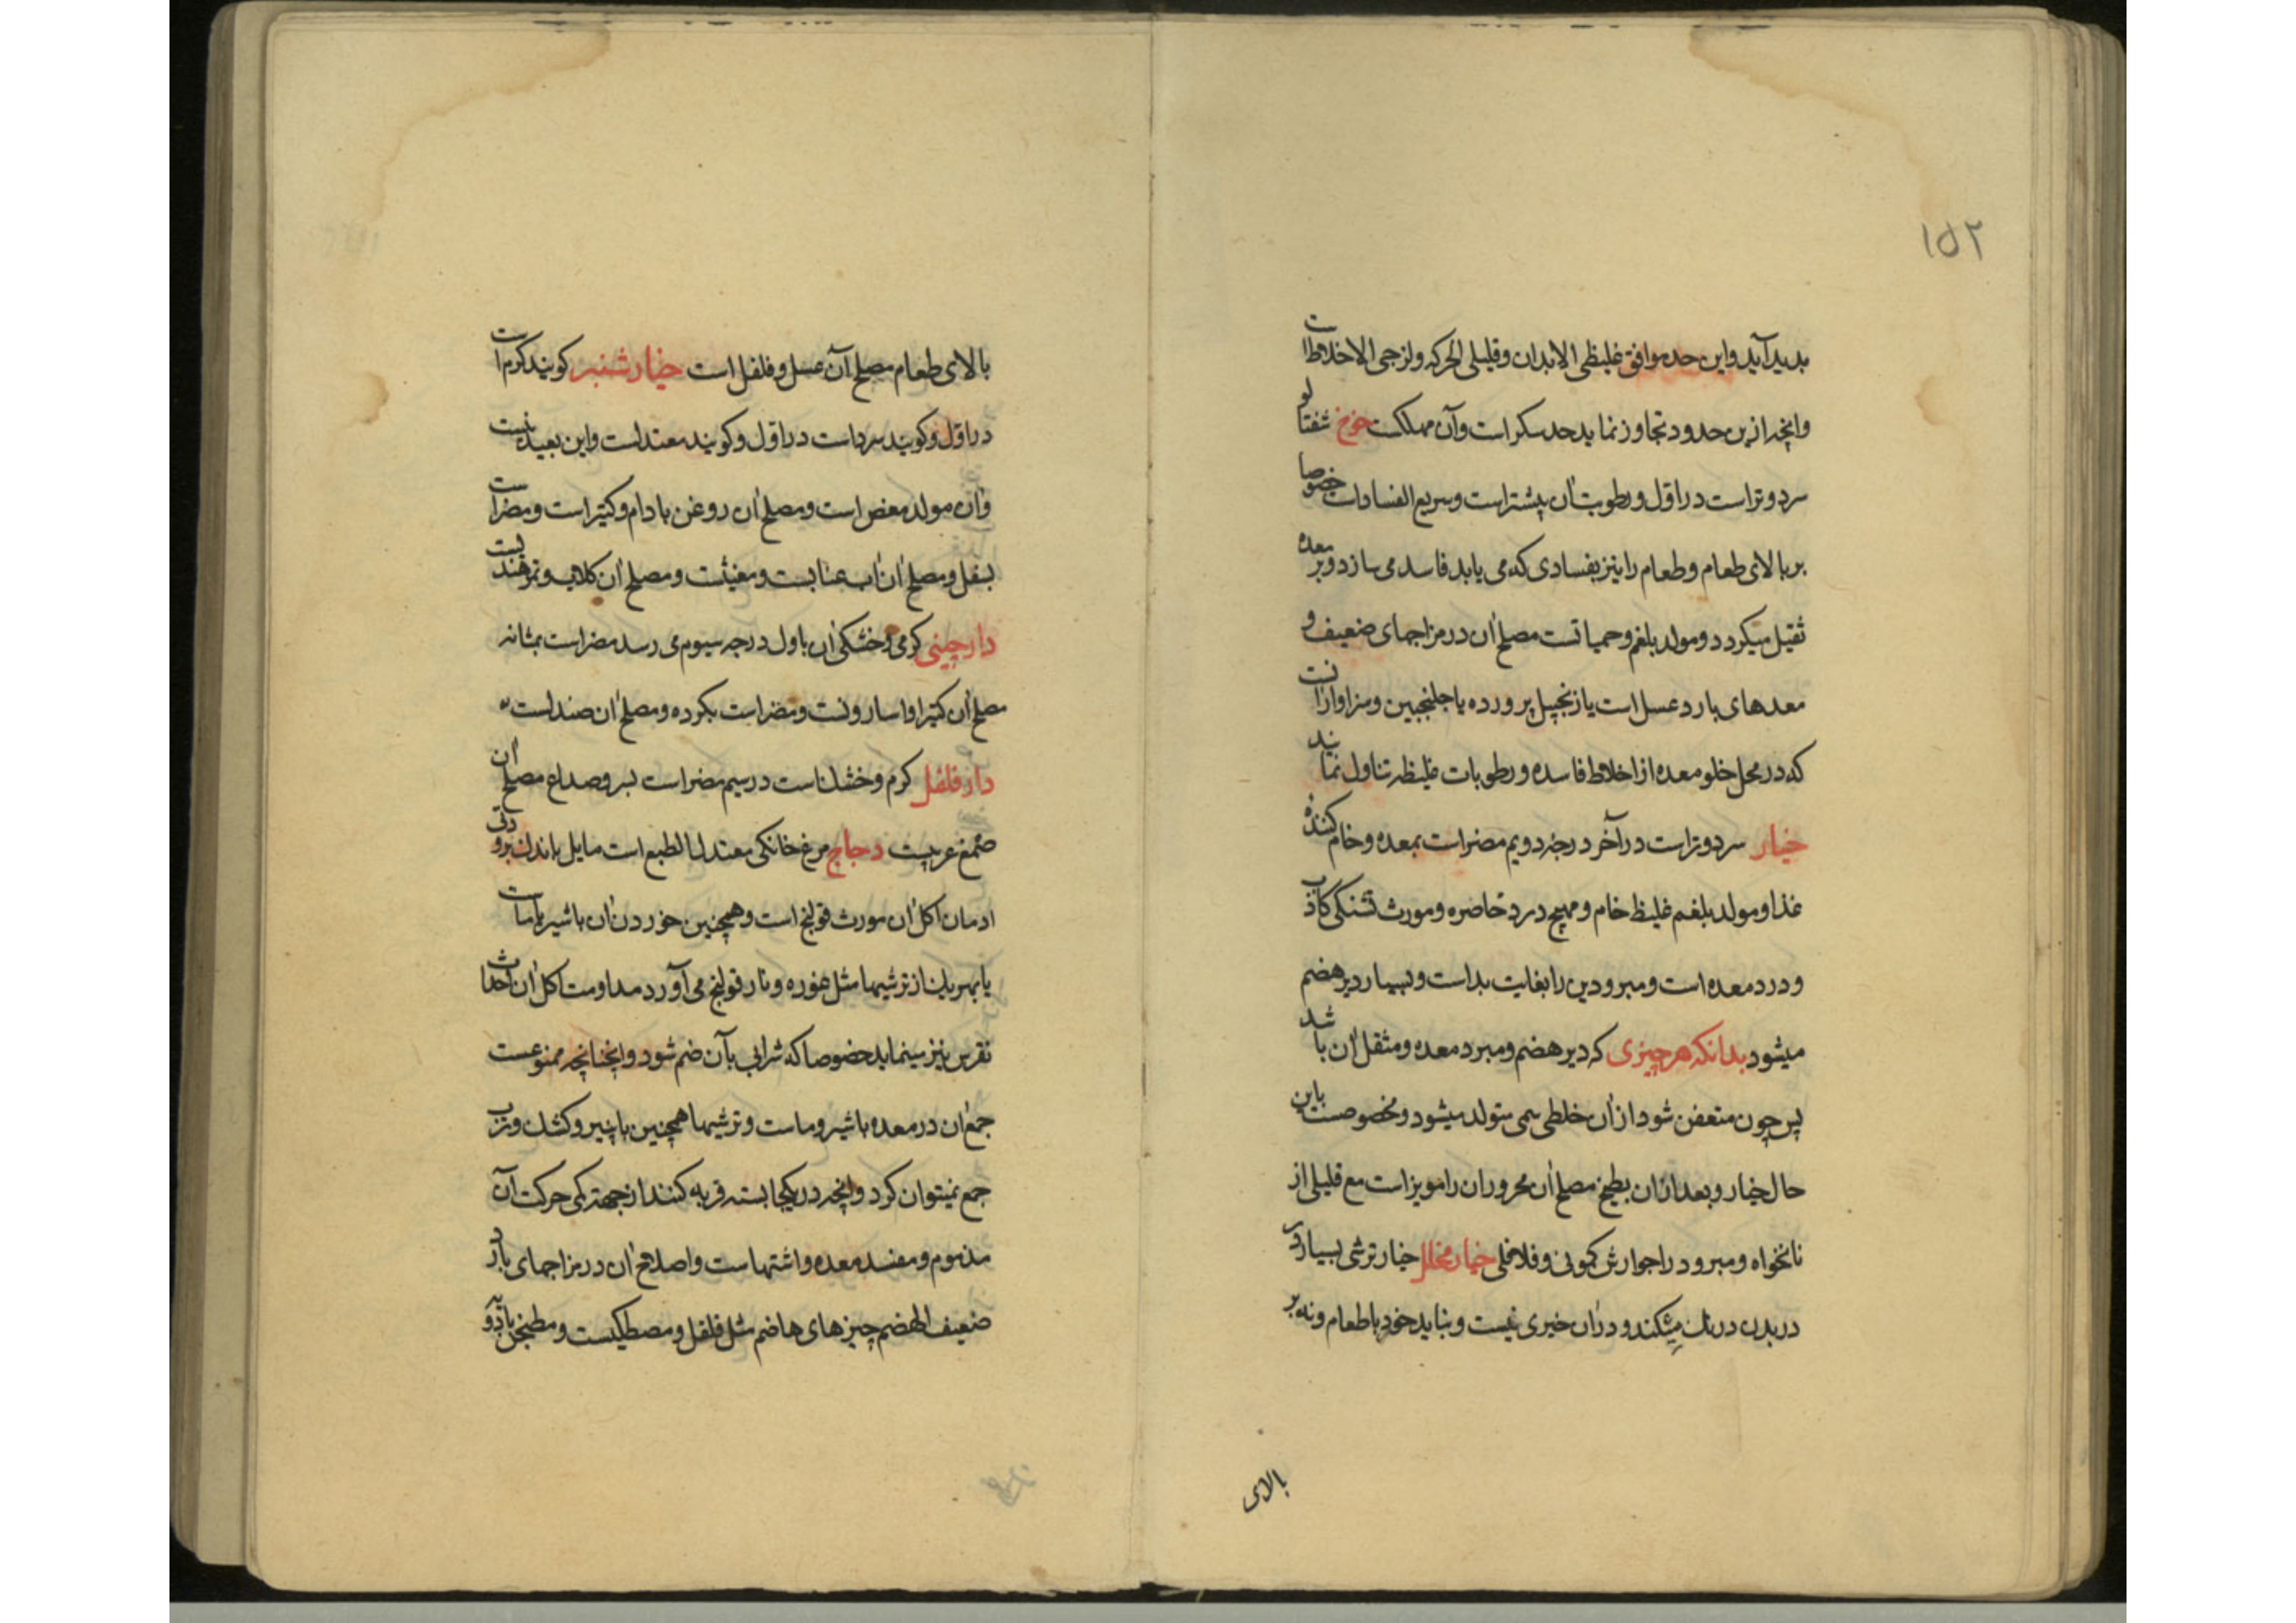 ١٥٢
بدید آید و این حد موافق غلیظی الابدان و قلیلی الحرکه و لزجی الاخلاط است
و انچه ازین حدود تجاوز نماید حد سکر است و آن مهلکست خوخ شفتالو
سرد و تر است در اول و رطوبت ان بیشتر است و سریع الفسادات خصوصا
بر بالای طعام و طعام را نیز بفسادی که می یابد فاسد می سازد و بر معده
ثقیل میکردد و مولد بلغم و حمیاتست مصلح ان در مزاجهای ضعیف و
معدهای بارد عسل است یا زنجبیل پرورده یا جلنجبین و سزاوار انست
که در محل خلو معده از اخلاط فاسده و رطوبات غلیظه تناول نمایند
خیار سرد و تر است در آخر درجه دویم مضر است بمعده و خام کنندهٔ
غذا و مولد بلغم غلیظ خام و مهیج درد خاصره و مورث تشنکی کاذب
و درد معده است و مبرودین را بغایت بد است و بسیار دیر هضم
میشود بدانکه هر چیزی که دیر هضم و مبرد معده و مثقل ان باشد
پس چون متعفن شود از ان خلطی سمی متولد میشود و مخصوصست باین
حال خیار و بعد از ان بطیخ مصلح ان محروران را مویز است مع قلیلی از
نانخواه و مبرود را جوارش کمونی و فلافلی خیار مخلل خیار ترشی بسیار
در بدن درنک میکند و در ان خیری نیست و نباید خورد با طعام و نه بر
بالای
بالای طعام مصلح آن عسل و فلفل است خیار شنبر کویند کرم است
در اول و کویند سرد است در اول و کویند معتدلست و این بعید نیست
و ان مولد مغص است و مصلح ان روغن بادام و کتیر است و مضر است
بسفل و مصلح ان اب عنابست و مغیثست و مصلح ان کلاب و تمر هندیست
دارچینی کرمی و خشکی ان باول درجه سیوم می رسد مضر است بمثانه
مصلح ان کتیرا و اسارونست و مضر است بکرده و مصلح ان صندلست
دار فلفل کرم و خشک است در سیم مضر است بسر و صداع مصلح ان
صمغ عربیست دجاج مرغ خانکی معتدل الطبع است مایل باندک برودتی
ادمان اکل ان مورث قولنج است و همچنین خوردن ان با شیر یا ماست
یا بهر یک از ترشیها مثل غوره و نار قولنج می آورد مداومت اکل ان احداث
نقرس نیز مینماید خصوصا که شرابی بآن ضم شود و انچنانچه ممنوعست
جمع ان در معده با شیر و ماست و ترشیها همچنین با پنیر و کشک و ترب
جمع نمیتوان کرد و انچه در یکجا بسته فربه کنند از جهه کمی حرکت آن
مذموم و مفسد معده و اشتهاست و اصلاح ان در مزاجهای بارد
ضعیف الهضم چیزهای هاضم مثل فلفل و مصطکیست و مطبخن